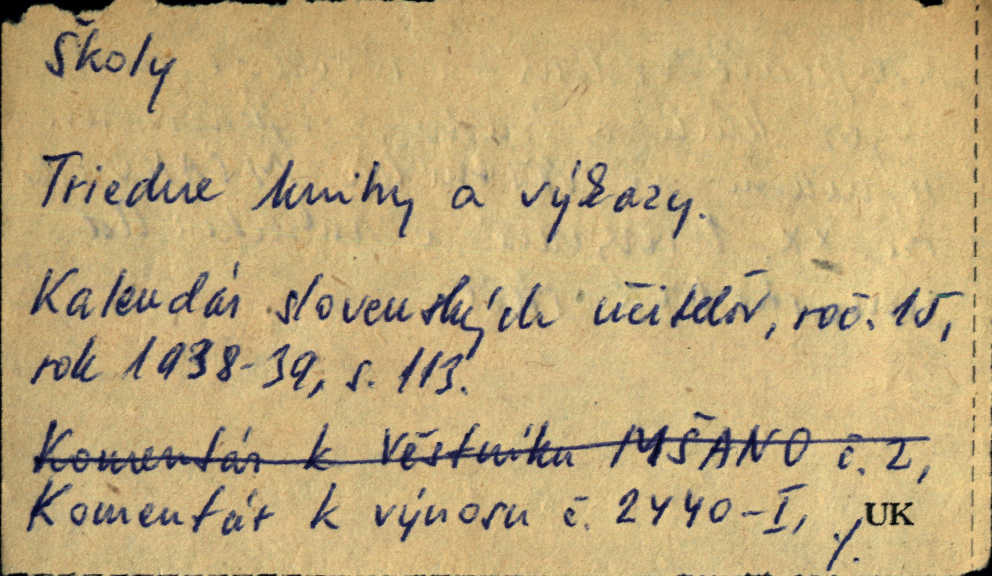 Školy
Triedne knihy a výkazy.
Kalendár slovenských učiteľov, roč. 15,
rok 1938-39, s. 113.
Komentár k Věstníku MŠANO č. 2,
Komentár k výnosu č. 2440-I, ./.
UK